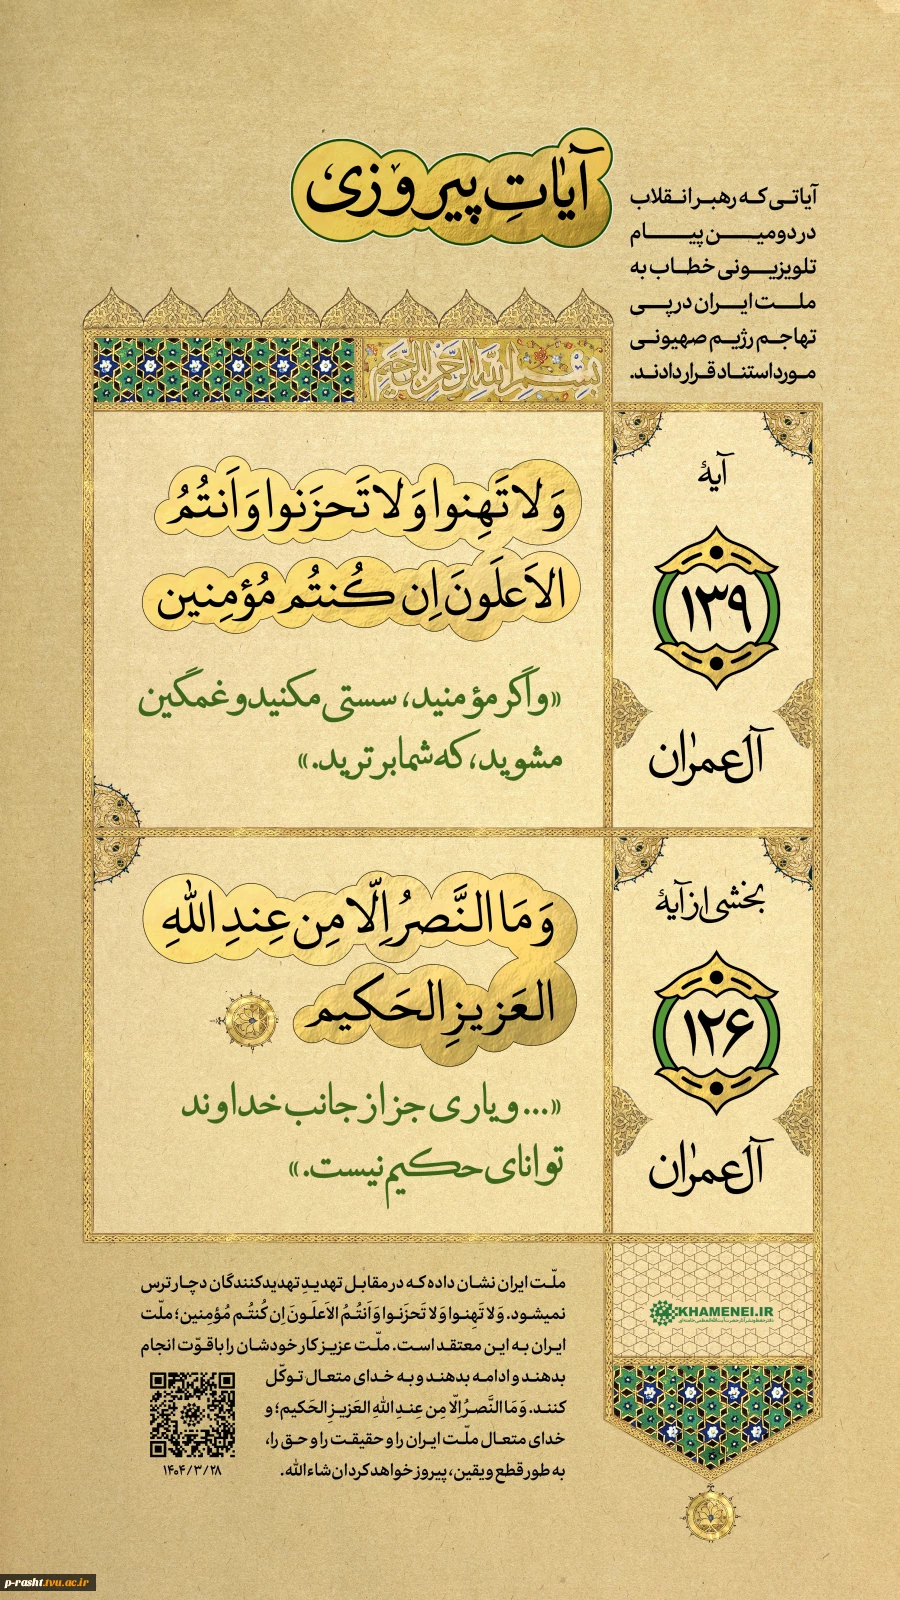 آیاتِ پیروزی
آیاتی که رهبر انقلاب
در دومین پیام
تلویزیونی خطاب به
ملت ایران در پی
تهاجم رژیم صهیونی
مورد استناد قرار دادند.
بِسْمِ اللهِ الرَّحْمٰنِ الرَّحِيمِ
آیهٔ
۱۳۹
آل‌عمرٰان
وَ لا تَهِنوا وَ لا تَحزَنوا وَ اَنتُمُ
الاَعلَونَ اِن كُنتُم مُؤمِنين
«و اگر مؤمنید، سستی مکنید و غمگین
مشوید، که شما برترید.»
بخشی از آیهٔ
۱۲۶
آل‌عمرٰان
وَ مَا النَّصرُ اِلّا مِن عِندِ اللهِ
العَزيزِ الحَكيم
«... و یاری جز از جانب خداوند
توانای حکیم نیست.»
ملّت ایران نشان داده که در مقابل تهدیدِ تهدیدکنندگان دچار ترس
نمیشود. وَ لا تَهِنوا وَ لا تَحزَنوا وَ اَنتُمُ الاَعلَونَ اِن كُنتُم مُؤمِنين؛ ملّت
ایران به این معتقد است. ملّت عزیز کار خودشان را با قوّت انجام
بدهند و ادامه بدهند و به خدای متعال توکّل
کنند. وَ مَا النَّصرُ اِلّا مِن عِندِ اللهِ العَزيزِ الحَكيم؛ و
خدای متعال ملّت ایران را و حقیقت را و حق را،
به طور قطع و یقین، پیروز خواهد کرد ان‌شاءالله.
۱۴۰۴/۳/۲۸
KHAMENEI.IR
دفتر حفظ و نشر آثار حضرت آیت‌الله العظمی خامنه‌ای
p-rasht.tvu.ac.ir